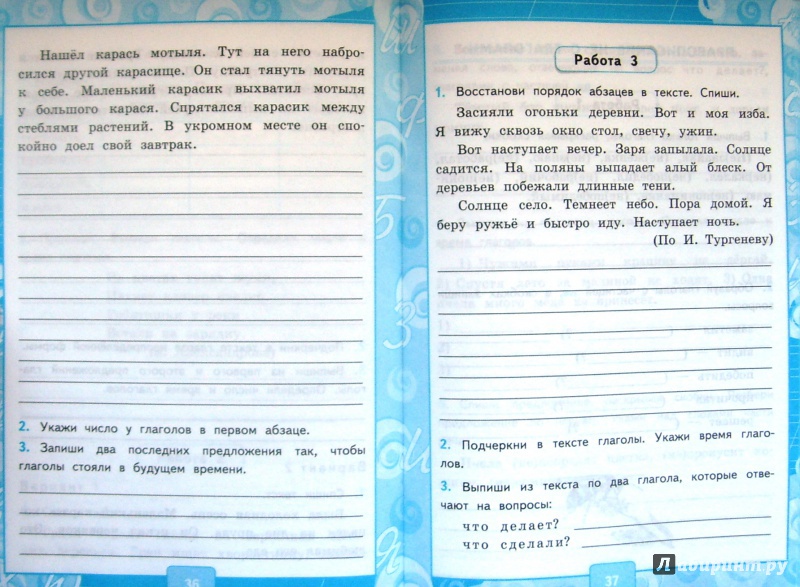 Нашёл карась мотыля. Тут на него набро-
сился другой карасище. Он стал тянуть мотыля
к себе. Маленький карасик выхватил мотыля
у большого карася. Спрятался карасик между
стеблями растений. В укромном месте он спо-
койно доел свой завтрак.
2. Укажи число у глаголов в первом абзаце.
3. Запиши два последних предложения так, чтобы
глаголы стояли в будущем времени.
36
Работа 3
1. Восстанови порядок абзацев в тексте. Спиши.
Засияли огоньки деревни. Вот и моя изба.
Я вижу сквозь окно стол, свечу, ужин.
Вот наступает вечер. Заря запылала. Солнце
садится. На поляны выпадает алый блеск. От
деревьев побежали длинные тени.
Солнце село. Темнеет небо. Пора домой. Я
беру ружьё и быстро иду. Наступает ночь.
(По И. Тургеневу)
2. Подчеркни в тексте глаголы. Укажи время глаго-
лов.
3. Выпиши из текста по два глагола, которые отве-
чают на вопросы:
что делает?
что сделали?
37
Лабиринт.ру